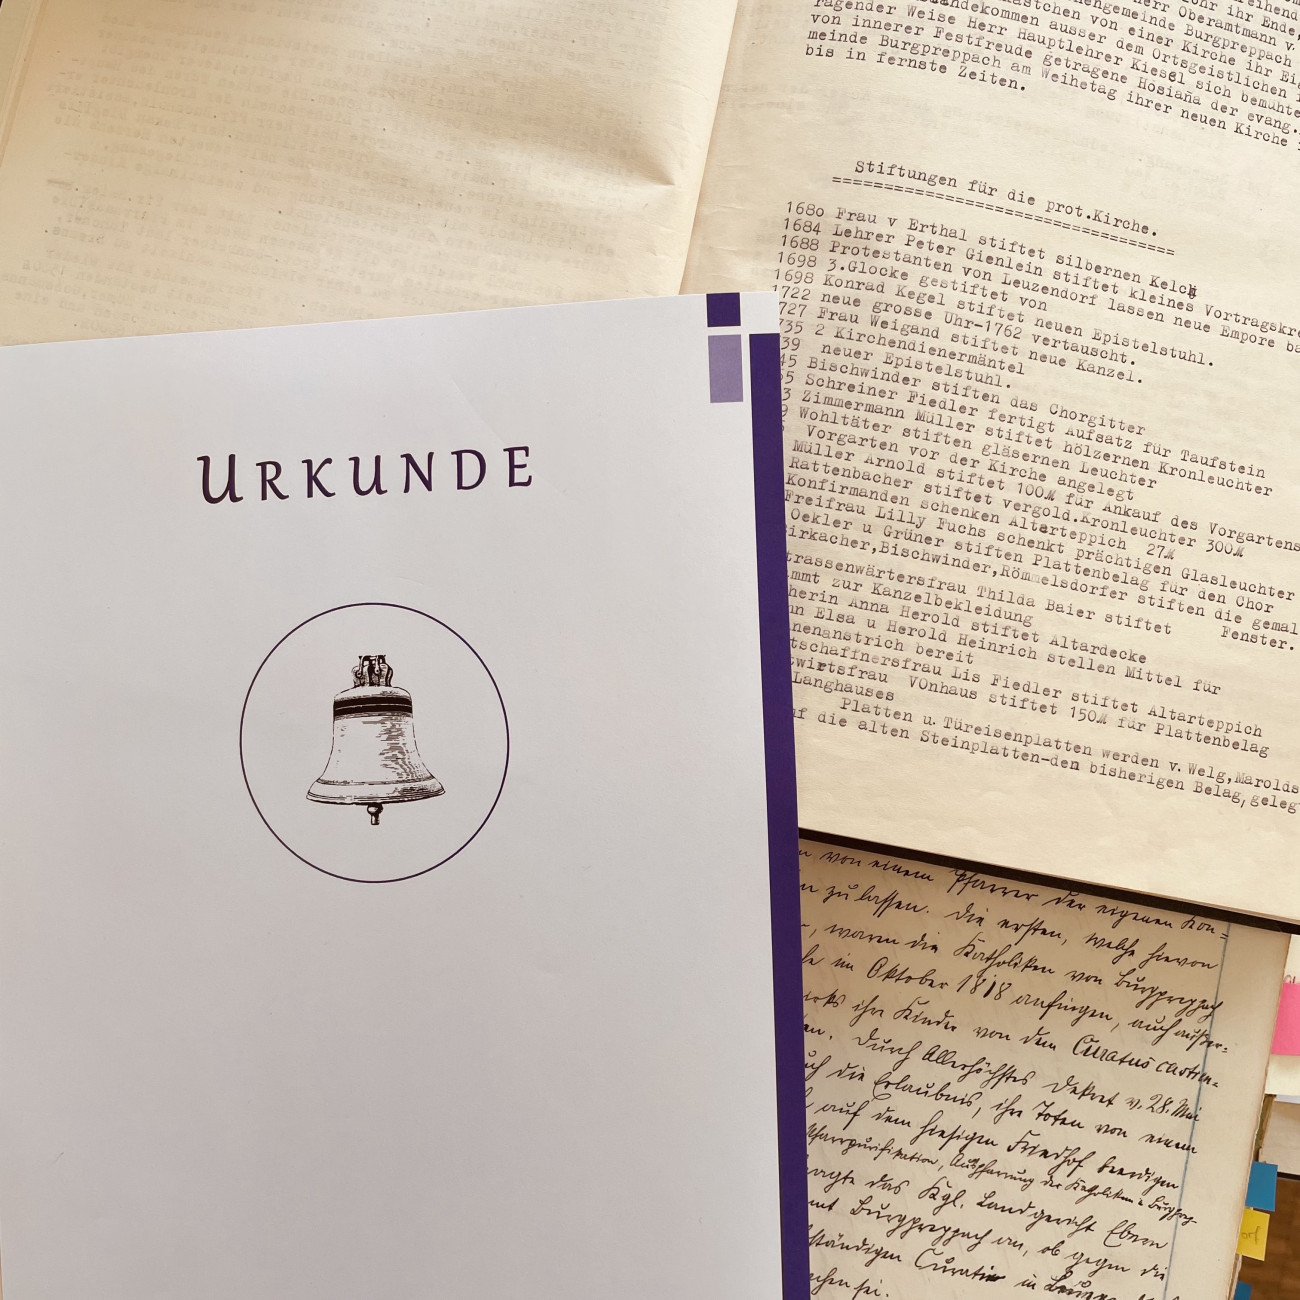 ohr ihr Ende,
kästchen von einer Herr Oberamtmann v.
kommen ausser dem Kirchengemeinde Burgpreppach
ragender Weise Herr Hauptlehrer Kiesel sich bemühte
von innerer Festfreude getragene Hosiaña der evang.
meinde Burgpreppach am Weihetag ihrer neuen Kirche
bis in fernste Zeiten.
Stiftungen für die prot.Kirche.
1680 Frau v Erthal stiftet silbernen Kelch
1684 Lehrer Peter Gienlein stiftet kleines Vortragskre
1688 Protestanten von Leuzendorf lassen neue Empore ba
1698 3.Glocke gestiftet von
1698 Konrad Kegel stiftet neuen Epistelstuhl.
1722 neue grosse Uhr-1762 vertauscht.
727 Frau Weigand stiftet neue Kanzel.
735 2 Kirchendienermäntel
39 neuer Epistelstuhl.
45 Bischwinder stiften das Chorgitter
5 Schreiner Fiedler fertigt Aufsatz für Taufstein
3 Zimmermann Müller stiftet hölzernen Kronleuchter
9 Wohltäter stiften gläsernen Leuchter
Vorgarten vor der Kirche angelegt
Müller Arnold stiftet 100M für Ankauf des Vorgartens
Rattenbacher stiftet vergold.Kronleuchter 300M
Konfirmanden schenken Altarteppich 27M
Freifrau Lilly Fuchs schenkt prächtigen Glasleuchter
Oekler u Grüner stiften Plattenbelag für den Chor
irkacher,Bischwinder,Römmelsdorfer stiften die gemal
Fenster.
trassenwärtersfrau Thilda Baier stiftet
mmt zur Kanzelbekleidung
herin Anna Herold stiftet Altardecke
nn Elsa u Herold Heinrich stellen Mittel für
nenanstrich bereit
tschaffnersfrau Lis Fiedler stiftet Altarteppich
twirtsfrau VOnhaus stiftet 150M für Plattenbelag
Langhauses
Platten u. Türeisenplatten werden v. Welg, Marolds
uf die alten Steinplatten-den bisherigen Belag, geleg
URKUNDE
von einem Pfarrer der eigenen Kon=
zu lassen. Die ersten, welche hievon
waren die Katholiken von Burgpreppach
im Oktober 1818 anfingen, auch außer=
ihre Kinder von dem Curatus
Durch Allerhöchstes Dekret v. 28. Mai
die Erlaubnis, ihre Toten von einem
auf dem hiesigen Friedhof beerdigen
Pfarrpurifikation, Auspfarrung der Katholiken
das Kgl. Landgericht Ebern
Burgpreppach an, ob gegen die
ständigen Curatie in
sei.